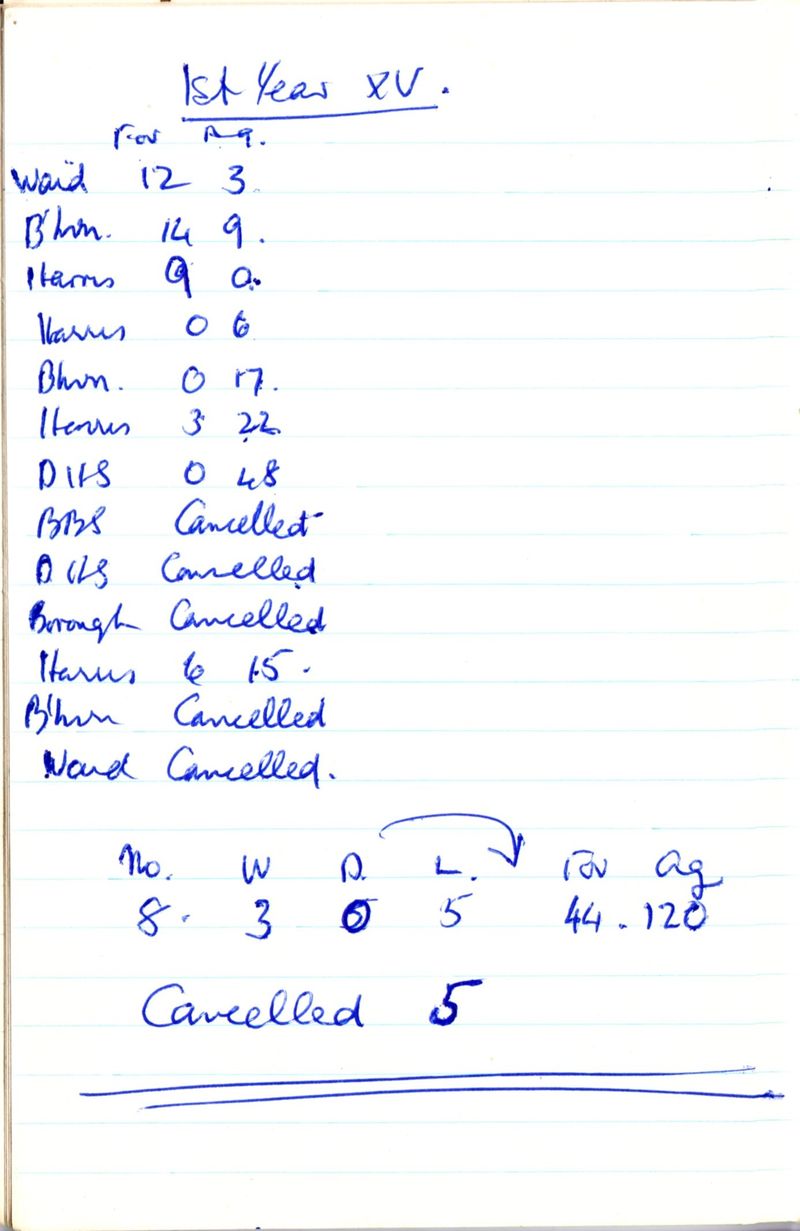 1st Year XV.
For Ag.
Waid 12 3
B'hvn. 14 9.
Harris 9 0.
Harris 0 6
Bhvn. 0 17.
Harris 3 22
DHS 0 48
BBS Cancelled
DHS Cancelled
Borough Cancelled
Harris 6 15.
B'hvn Cancelled
Waid Cancelled.
No. W D. L. For Ag
8. 3 0 5 44. 120
Cancelled 5